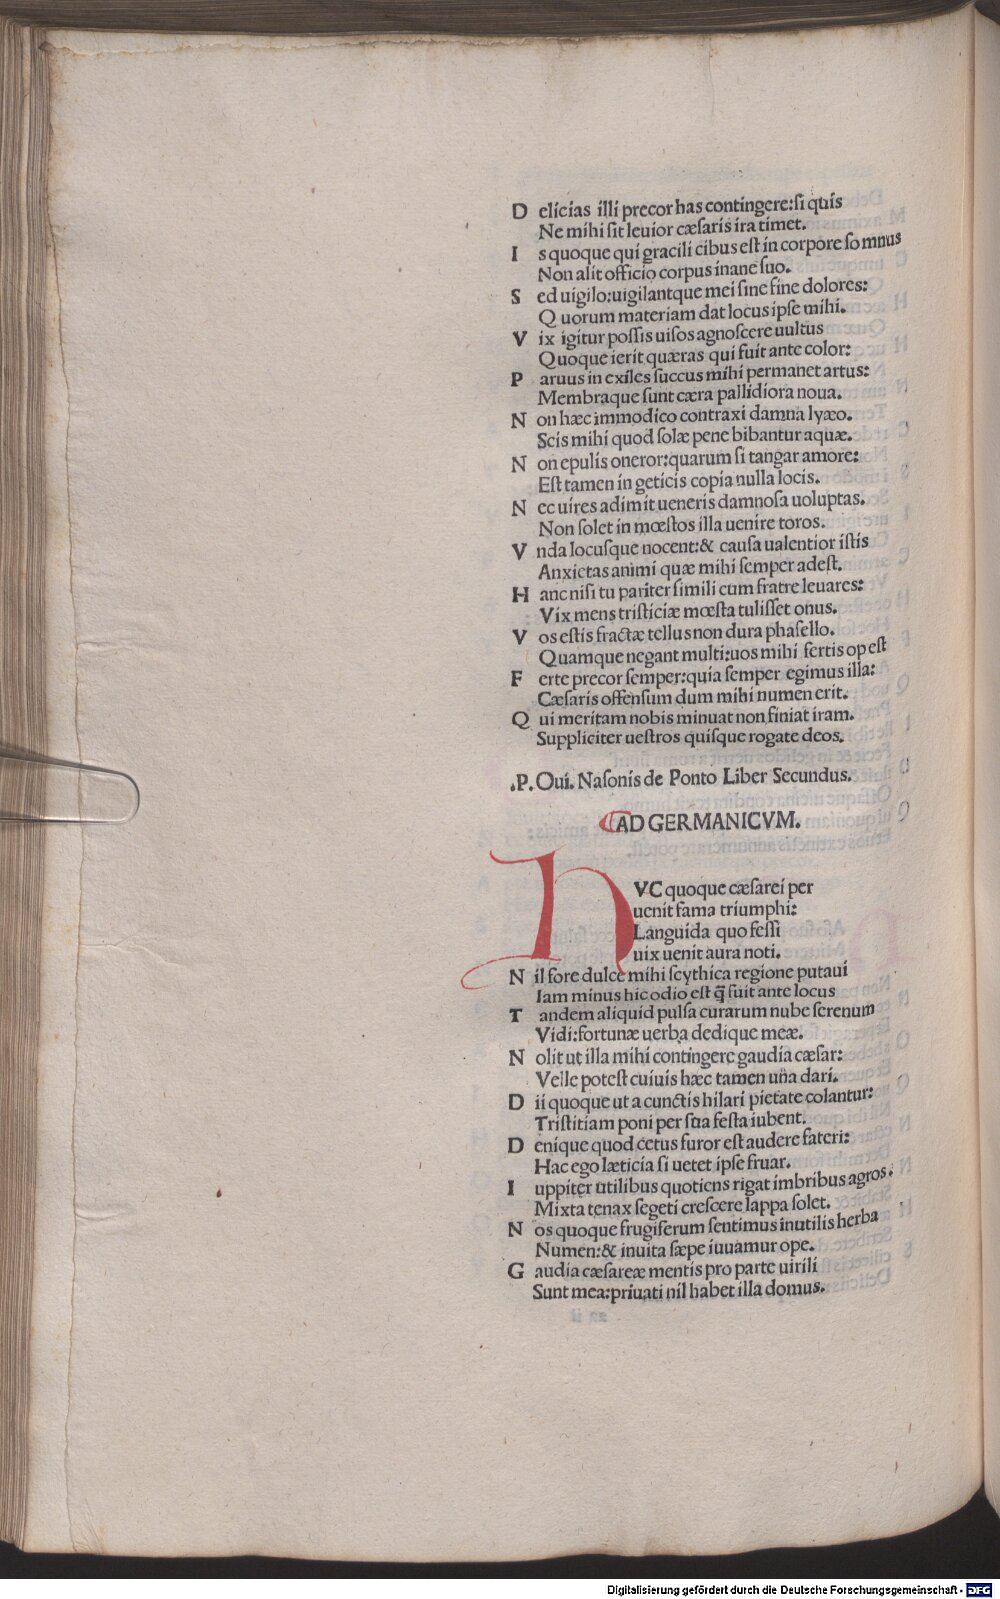 D elicias illi precor has contingere:ſi quis
Ne mihi ſit leuior cæſaris ira timet.
I s quoque qui gracili cibus eſt in corpore ſomnus
Non alit officio corpus inane ſuo.
S ed uigilo:uigilantque mei ſine fine dolores:
Q uorum materiam dat locus ipſe mihi.
V ix igitur poſſis uiſos agnoſcere uultus
Quoque ierit quæras qui fuit ante color:
P aruus in exiles ſuccus mihi permanet artus:
Membraque ſunt cæra pallidiora noua.
N on hæc immodico contraxi damna lyæo.
Scis mihi quod ſolæ pene bibantur aquæ.
N on epulis oneror:quarum ſi tangar amore:
Eſt tamen in geticis copia nulla locis.
N ec uires adimit ueneris damnoſa uoluptas.
Non ſolet in mœſtos illa uenire toros.
V nda locuſque nocent:& cauſa ualentior iſtis
Anxietas animi quæ mihi ſemper adeſt.
H anc niſi tu pariter ſimili cum fratre leuares:
Vix mens triſticiæ mœſta tuliſſet onus.
V os eſtis fractæ tellus non dura phaſello.
Quamque negant multi:uos mihi fertis op eſt
F erte precor ſemper:quia ſemper egimus illa:
Cæſaris offenſum dum mihi numen erit.
Q ui meritam nobis minuat non finiat iram.
Suppliciter ueſtros quiſque rogate deos.
.P. Oui. Naſonis de Ponto Liber Secundus.
AD GERMANICVM.
H VC quoque cæſarei per
uenit fama triumphi:
Languida quo feſſi
uix uenit aura noti.
N il fore dulce mihi ſcythica regione putaui
Iam minus hic odio eſt q̄ fuit ante locus
T andem aliquid pulſa curarum nube ſerenum
Vidi:fortunæ uerba dedique meæ.
N olit ut illa mihi contingere gaudia cæſar:
Velle poteſt cuiuis hæc tamen una dari.
D ii quoque ut a cunctis hilari pietate colantur:
Triſtitiam poni per ſua feſta iubent.
D enique quod cetus furor eſt audere fateri:
Hac ego læticia ſi uetet ipſe fruar.
I uppiter utilibus quotiens rigat imbribus agros.
Mixta tenax ſegeti creſcere lappa ſolet.
N os quoque frugiferum ſentimus inutilis herba
Numen:& inuita ſæpe iuuamur ope.
G audia cæſareæ mentis pro parte uirili
Sunt mea:priuati nil habet illa domus.
Digitalisierung gefördert durch die Deutsche Forschungsgemeinschaft - DFG